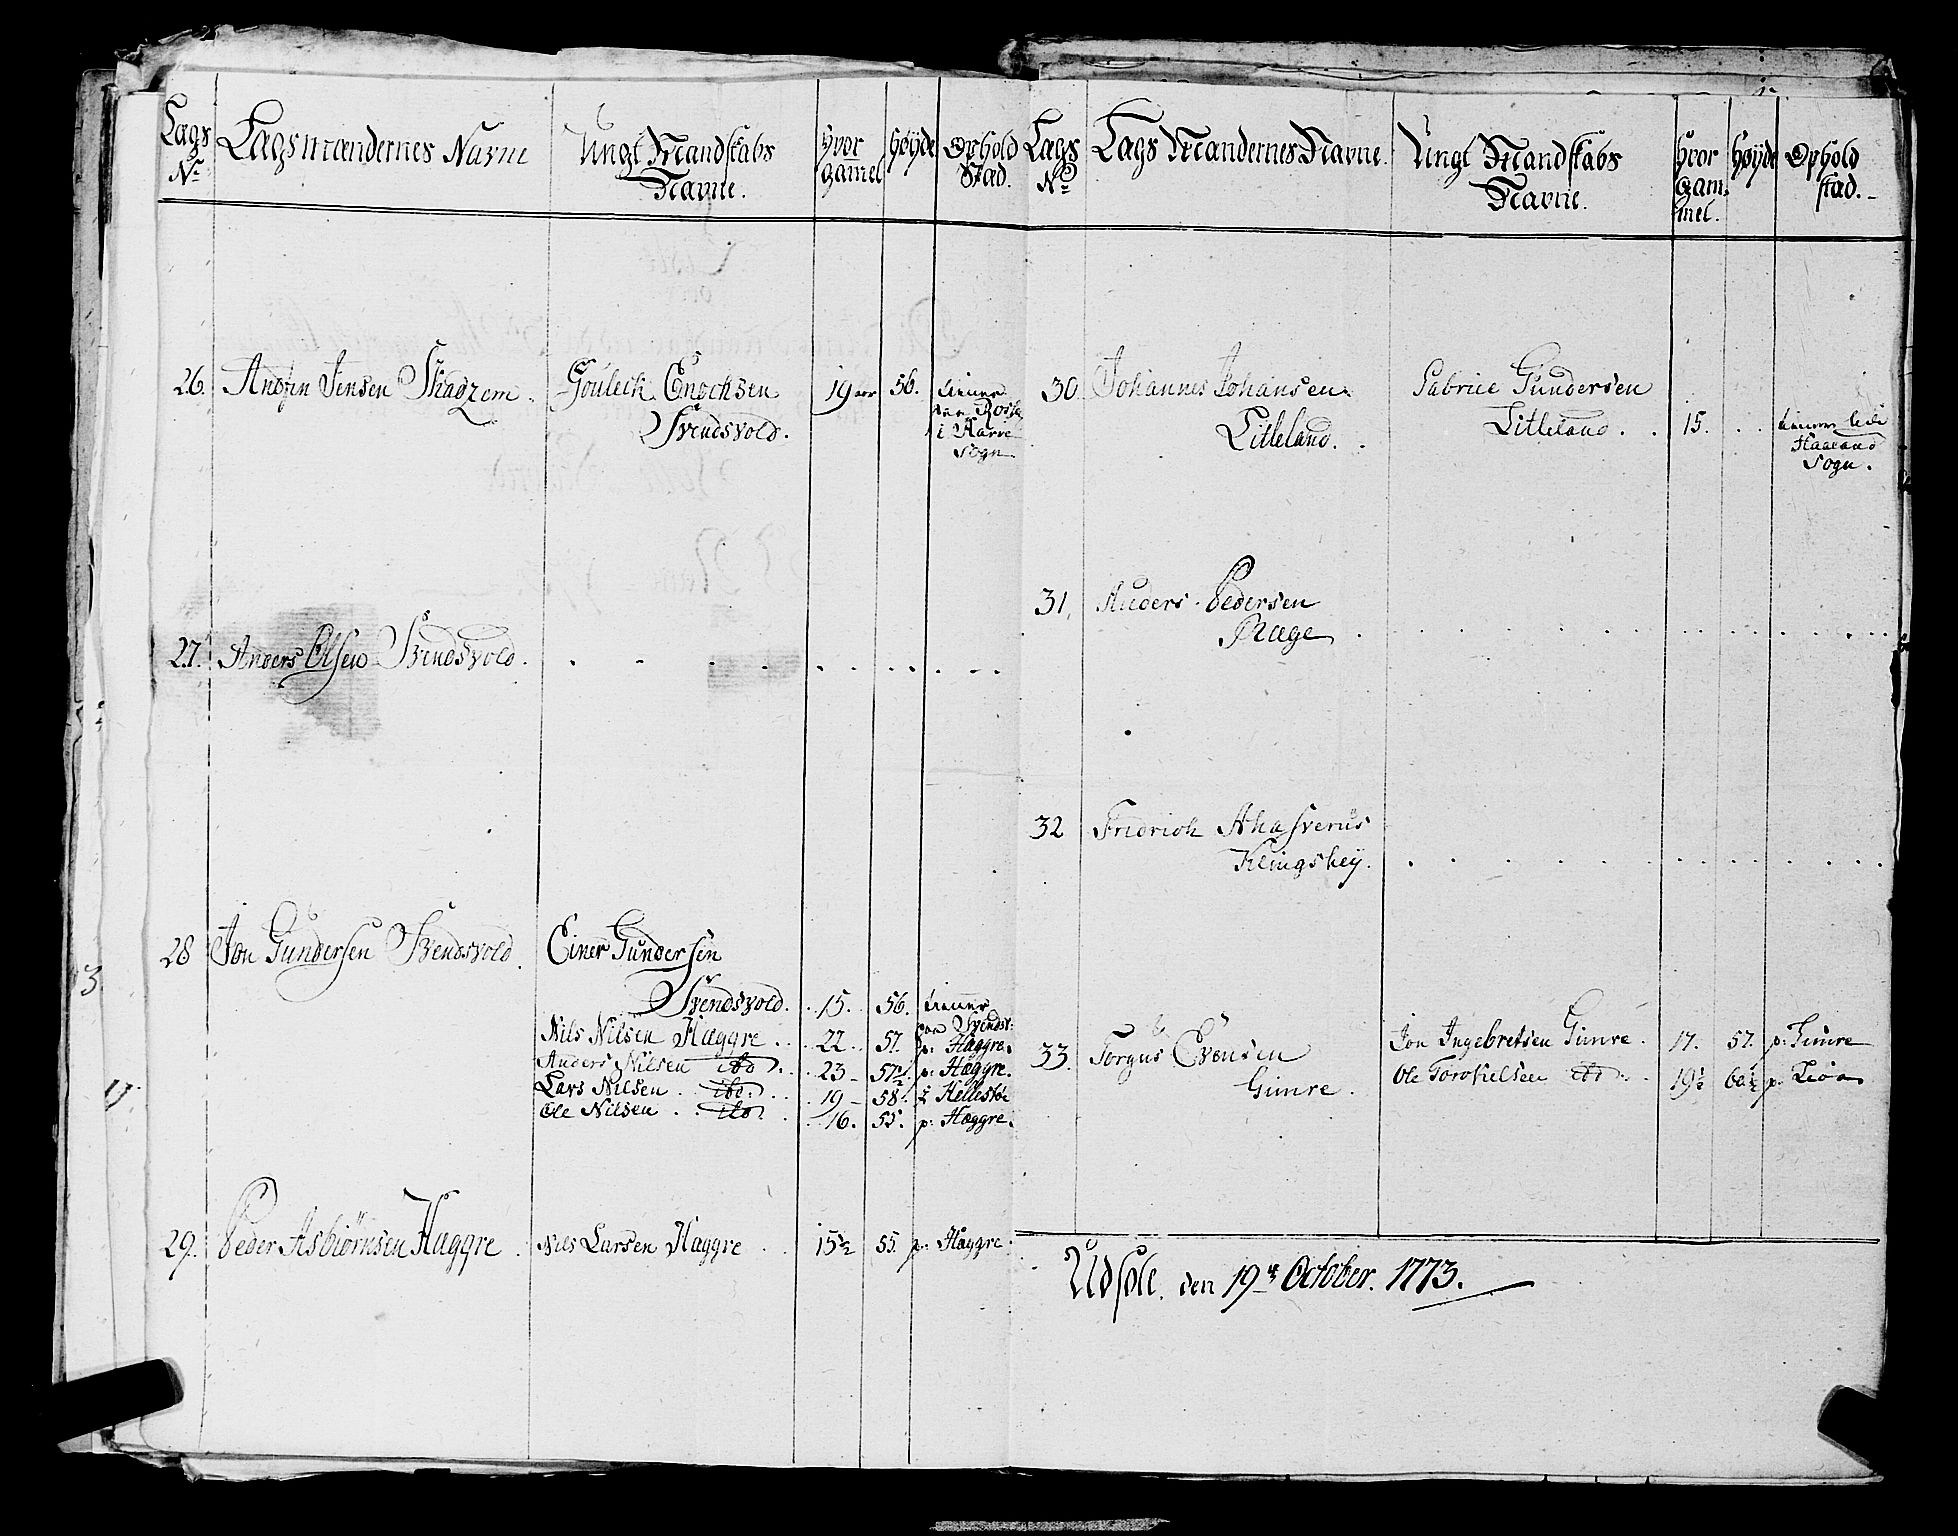 Lægs Nr.
Lægsmændernes Navne
Ungt Mandskabs Navne.
Hvor Gammel
Høyde
Ophold Stad.
26. Andfin Jensen Skadzem.
Gouleck Enochsen
Svendsvold.
19 aar 56. tiener
paa
i
Sogn
27. Anders Olsen Svendsvold.
28 Jon Gundersen Svendsvold.
Einer Gundersen
Svendsvold. 15. 56. tiener
paa Svendsv:
Nils Nilsen Hæggre 22 57. p: Hæggre.
Anders Nilsen ibd 23 57½ p: Hæggre.
Lars Nilsen ibd. 19 58. i Hellestøe
Ole Nilsen ibd. 16. 55. p: Hæggre.
29. Peder Asbiørnsen Hæggre
Nils Larsen Hæggre 15½ 55. p: Hæggre.
Lægs No
Lægs Mændernes Navne.
Ungt Mandskabs Navne.
Hvor Gam-mel.
Høyde
Ophold stad.
30. Johannes Johansen
Litleland.
Gabriel Gundersen
Litleland. 15. tiener
Haaland
Sogn.
31, Anders Pedersen
Ræge
32 Fridrich Ahasverus
Klingshey.
33. Torgus Evensen
Gimre.
Jon Ingebretsen Gimre. 17. 57. p: Gimre
Ole Torokielsen ibd. 19½ 60½ p:
Udsole. den 19de October. 1773.
3